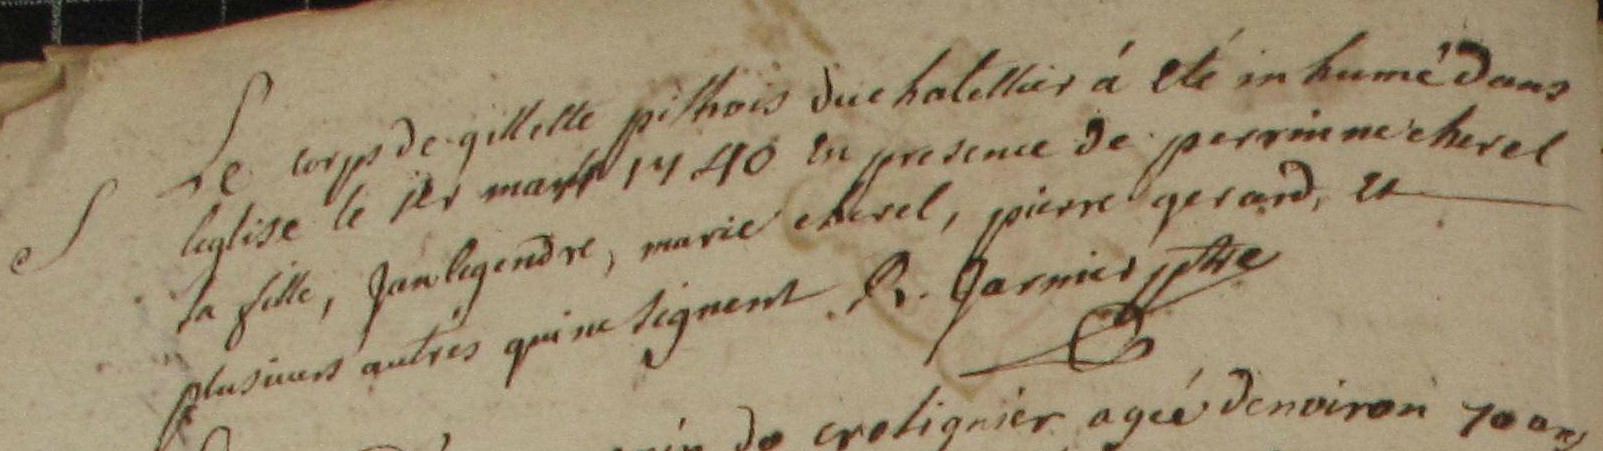 Le corps de gillette pithois du chatellier á eté inhumé dans
leglise le 1er mars 1740 en presence de perrinne cherel
sa fille, Jan legendre, marie cherel, pierre gerard, et
plusieurs autres qui ne signent R. Garnier ptre
do crolignier ageé denviron 70 ans